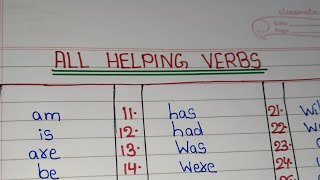 classmate
ALL HELPING VERBS
am 11. has 21.
is 12. had 22.
are 13. was 23.
be 14. were 24.